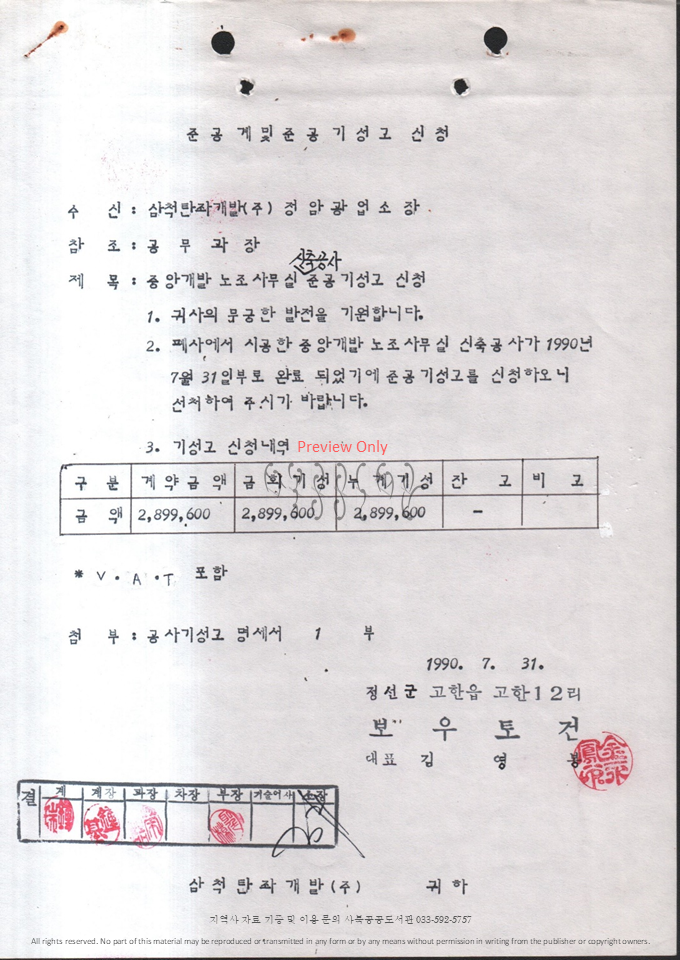 준공계및준공기성고 신청
수 신 : 삼척탄좌개발(주) 정암광업소장
참 조 : 공무과장
신축공사
제 목 : 중앙개발 노조사무실 준공기성고 신청
1. 귀사의 무궁한 발전을 기원합니다.
2. 폐사에서 시공한 중앙개발 노조사무실 신축공사가 1990년
7월 31일부로 완료 되었기에 준공기성고를 신청하오니
선처하여 주시기 바랍니다.
3. 기성고 신청내역
Preview Only
구 분 계약금액 금회기성 누계기성 잔 고 비 고
금 액 2,899,600 2,899,600 2,899,600 -
* V.A.T 포함
첨 부 : 공사기성고 명세서 1 부
1990. 7. 31.
정선군 고한읍 고한12리
보우토건
대표 김 영 봉
결 계 계장 과장 차장 부장 기술이사 소장
삼척탄좌개발(주) 귀하
지역사 자료 기증 및 이용 문의 사북공공도서관 033-592-5757
All rights reserved. No part of this material may be reproduced or transmitted in any form or by any means without permission in writing from the publisher or copyright owners.